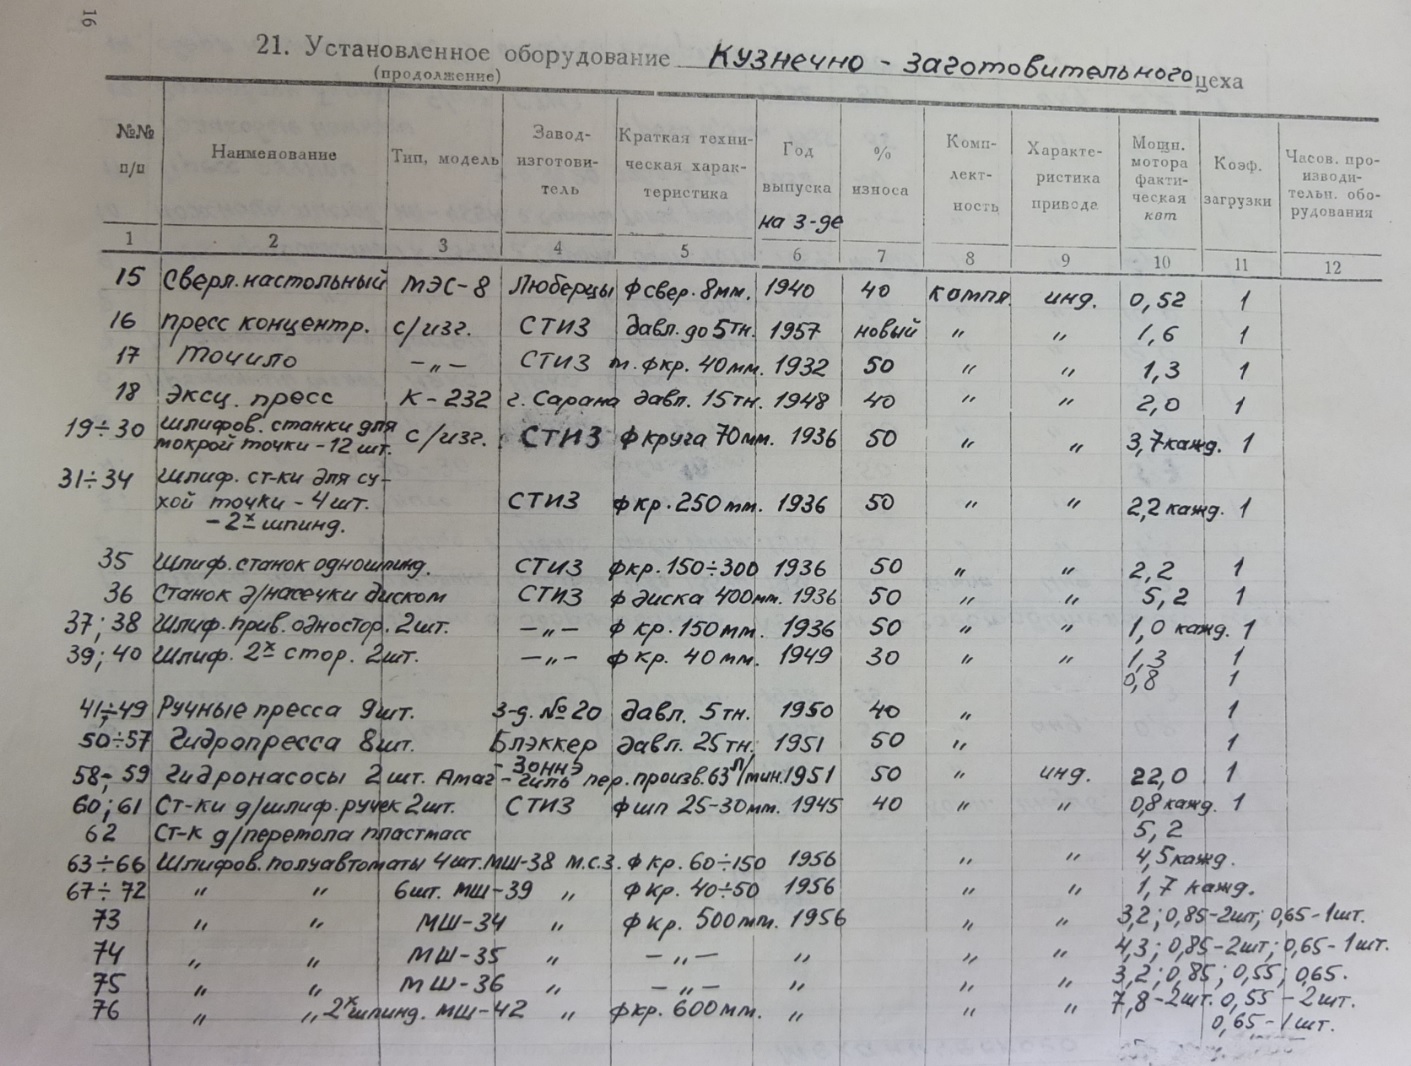 16
21. Установленное оборудование Кузнечно - заготовительного цеха
(продолжение)
№№ п/п Наименование Тип, модель Завод-изготови-тель Краткая техни-ческая харак-теристика Год выпуска на з-де % износа Комп-лект-ность Характе-ристика привода Мощн. мотора факти-ческая квт Коэф. загрузки Часов. про-изводи-тельн. обо-рудования
1 2 3 4 5 6 7 8 9 10 11 12
15 Сверл. настольный МЭС-8 Люберцы ф свер. 8мм. 1940 40 компл. инд. 0,52 1
16 пресс концентр. с/изг. СТИЗ давл. до 5тн. 1957 новый " " 1,6 1
17 точило -"- СТИЗ т. фкр. 40мм. 1932 50 " " 1,3 1
18 эксц. пресс К-232 г. Сарана давл. 15тн. 1948 40 " " 2,0 1
19÷30 шлифов. станки для
мокрой точки - 12 шт. с/изг. СТИЗ ф круга 70мм. 1936 50 " " 3,7 кажд. 1
31÷34 Шлиф. ст-ки для су-
хой точки - 4 шт. СТИЗ ф кр. 250мм. 1936 50 " " 2,2 кажд. 1
- 2х шпинд.
35 Шлиф. станок одношпинд. СТИЗ фкр. 150÷300 1936 50 " " 2,2 1
36 Станок д/насечки диском СТИЗ ф диска 400мм. 1936 50 " " 5,2 1
37; 38 Шлиф. прив. одностор. 2шт. -"- ф кр. 150мм. 1936 50 " " 1,0 кажд. 1
39; 40 Шлиф. 2х стор. 2шт. -"- ф кр. 40мм. 1949 30 " " 1,3 1
0,8 1
41÷49 Ручные пресса 9шт. З-д. №20 давл. 5тн. 1950 40 " 1
50÷57 Гидропресса 8шт. Блэккер давл. 25тн. 1951 50 " 1
58; 59 Гидронасосы 2 шт. Амаг - Зоннэ - гиль пер. произв. 63 л/мин. 1951 50 " инд. 22,0 1
60; 61 Ст-ки д/шлиф. ручек 2шт. СТИЗ ф шп 25-30мм. 1945 40 " " 0,8 кажд. 1
62 Ст-к д/перемола пластмасс 5,2
63÷66 Шлифов. полуавтоматы 4 шт. МШ-38 М.С.З. ф кр. 60÷150 1956 " " 4,5 кажд.
67÷72 " " 6шт. МШ-39 " ф кр. 40÷50 1956 " " 1,7 кажд.
73 " " МШ-34 " ф кр. 500мм. 1956 " " 3,2; 0,85-2шт; 0,65-1шт.
74 " " МШ-35 " -"- " " " 4,3; 0,85-2шт; 0,65-1шт.
75 " " МШ-36 " -"- " " " 3,2; 0,85; 0,55; 0,65.
76 " " 2х шпинд. МШ-42 " фкр. 600мм. " " " 7,8-2шт. 0,55-2шт.
0,65-1шт.